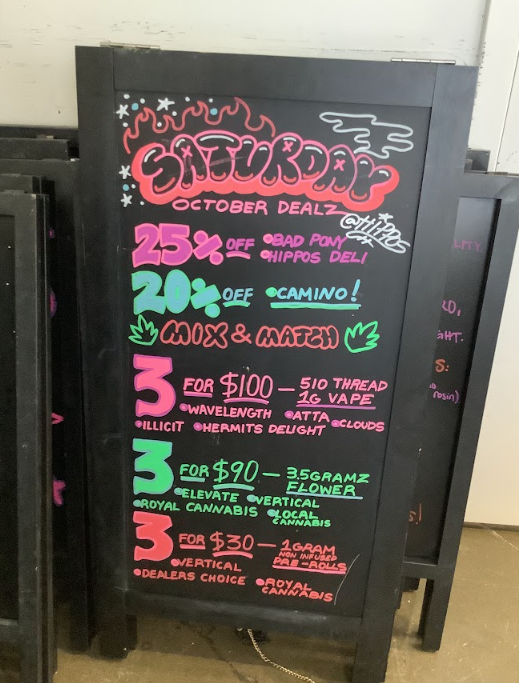 SATURDAY
OCTOBER DEALZ
@HIPPOS
25% OFF •BAD PONY
•HIPPOS DELI
20% OFF •CAMINO!
MIX & MATCH
3 FOR $100 — 510 THREAD
1G VAPE
•WAVELENGTH •ATTA •CLOUDS
•ILLICIT •HERMITS DELIGHT
3 FOR $90 — 3.5GRAMZ
FLOWER
•ELEVATE •VERTICAL
•ROYAL CANNABIS •LOCAL
CANNABIS
3 FOR $30 — 1GRAM
NON INFUSED
PRE-ROLLS
•VERTICAL
•DEALERS CHOICE •ROYAL
CANNABIS
GHT.
S:
rosin)